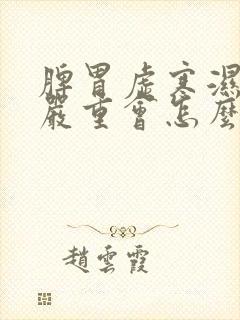 脾胃虛寒濕
嚴重會怎麼
趙雲霞